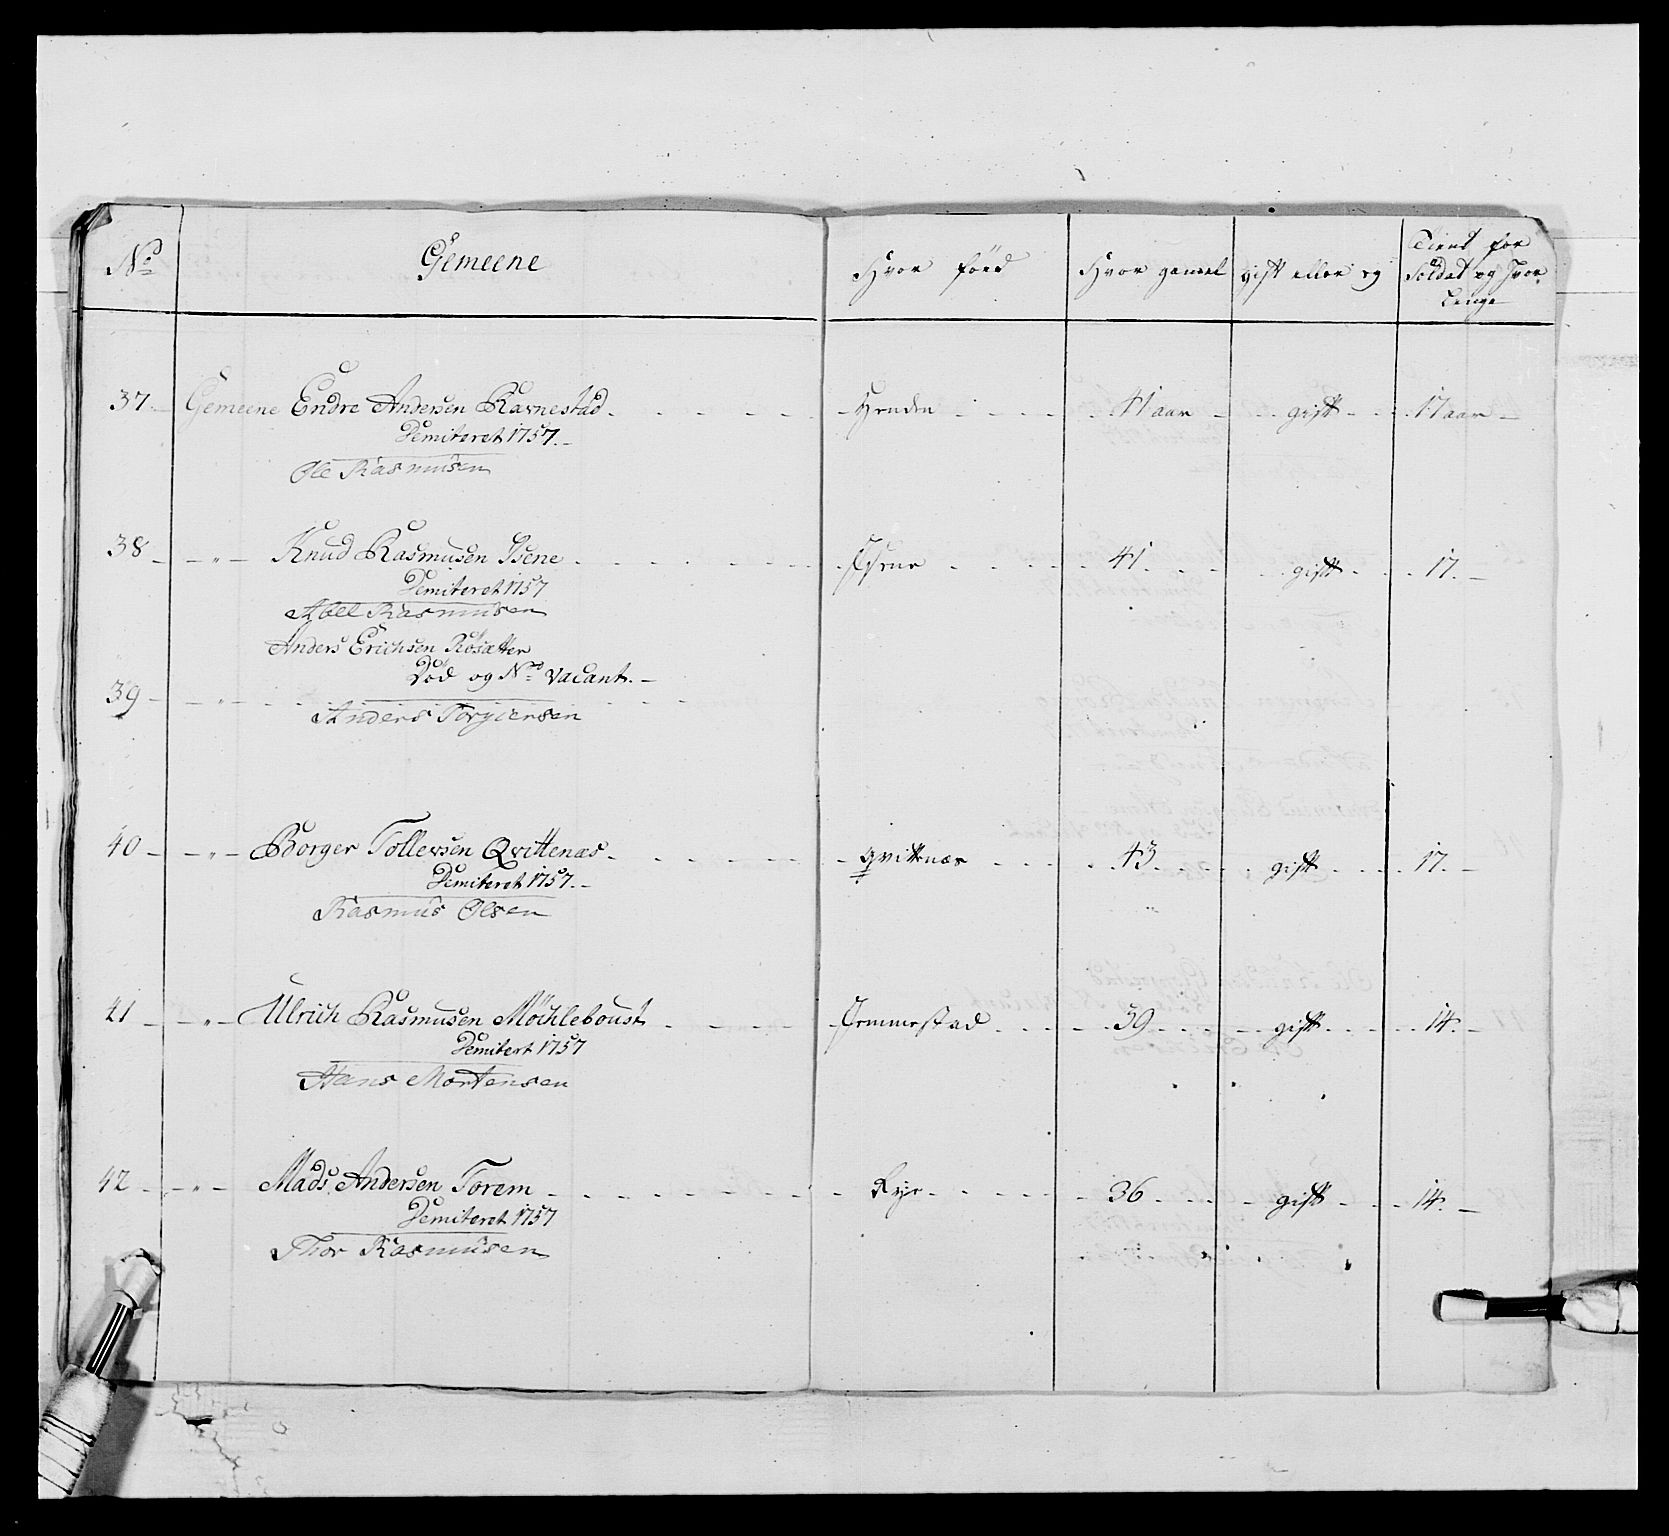 No Gemeene Hvor föed Hvor gamel gift eller ey Tient for Soldat og hvor Lenge
37. Gemeene Endre Andersen Ravnestad Henden 41 aar gift 17 aar
Demiteret 1757.
Ole Rasmusen
38 - " - Knud Rasmusen Isene Isene 41. gift 17.
Demiteret 1757
Abel Rasmusen
Anders Erichsen Rosætter
Död og No vacant.
39 - " -
Anders Torgiersen
40 - " - Borger Tollevsen Qvittenæs qvittnæs 43 gift 17.
Demiteret 1757.
Rasmus Olsen
41 - " - Ulrich Rasmusen Möchleboust Jemmestad 39 gift 14.
Demitert 1757
Hans Mortensen
42 - " - Mads Andersen Torem Rye 36 gift 14.
Demiteret 1757
Thor Rasmusen